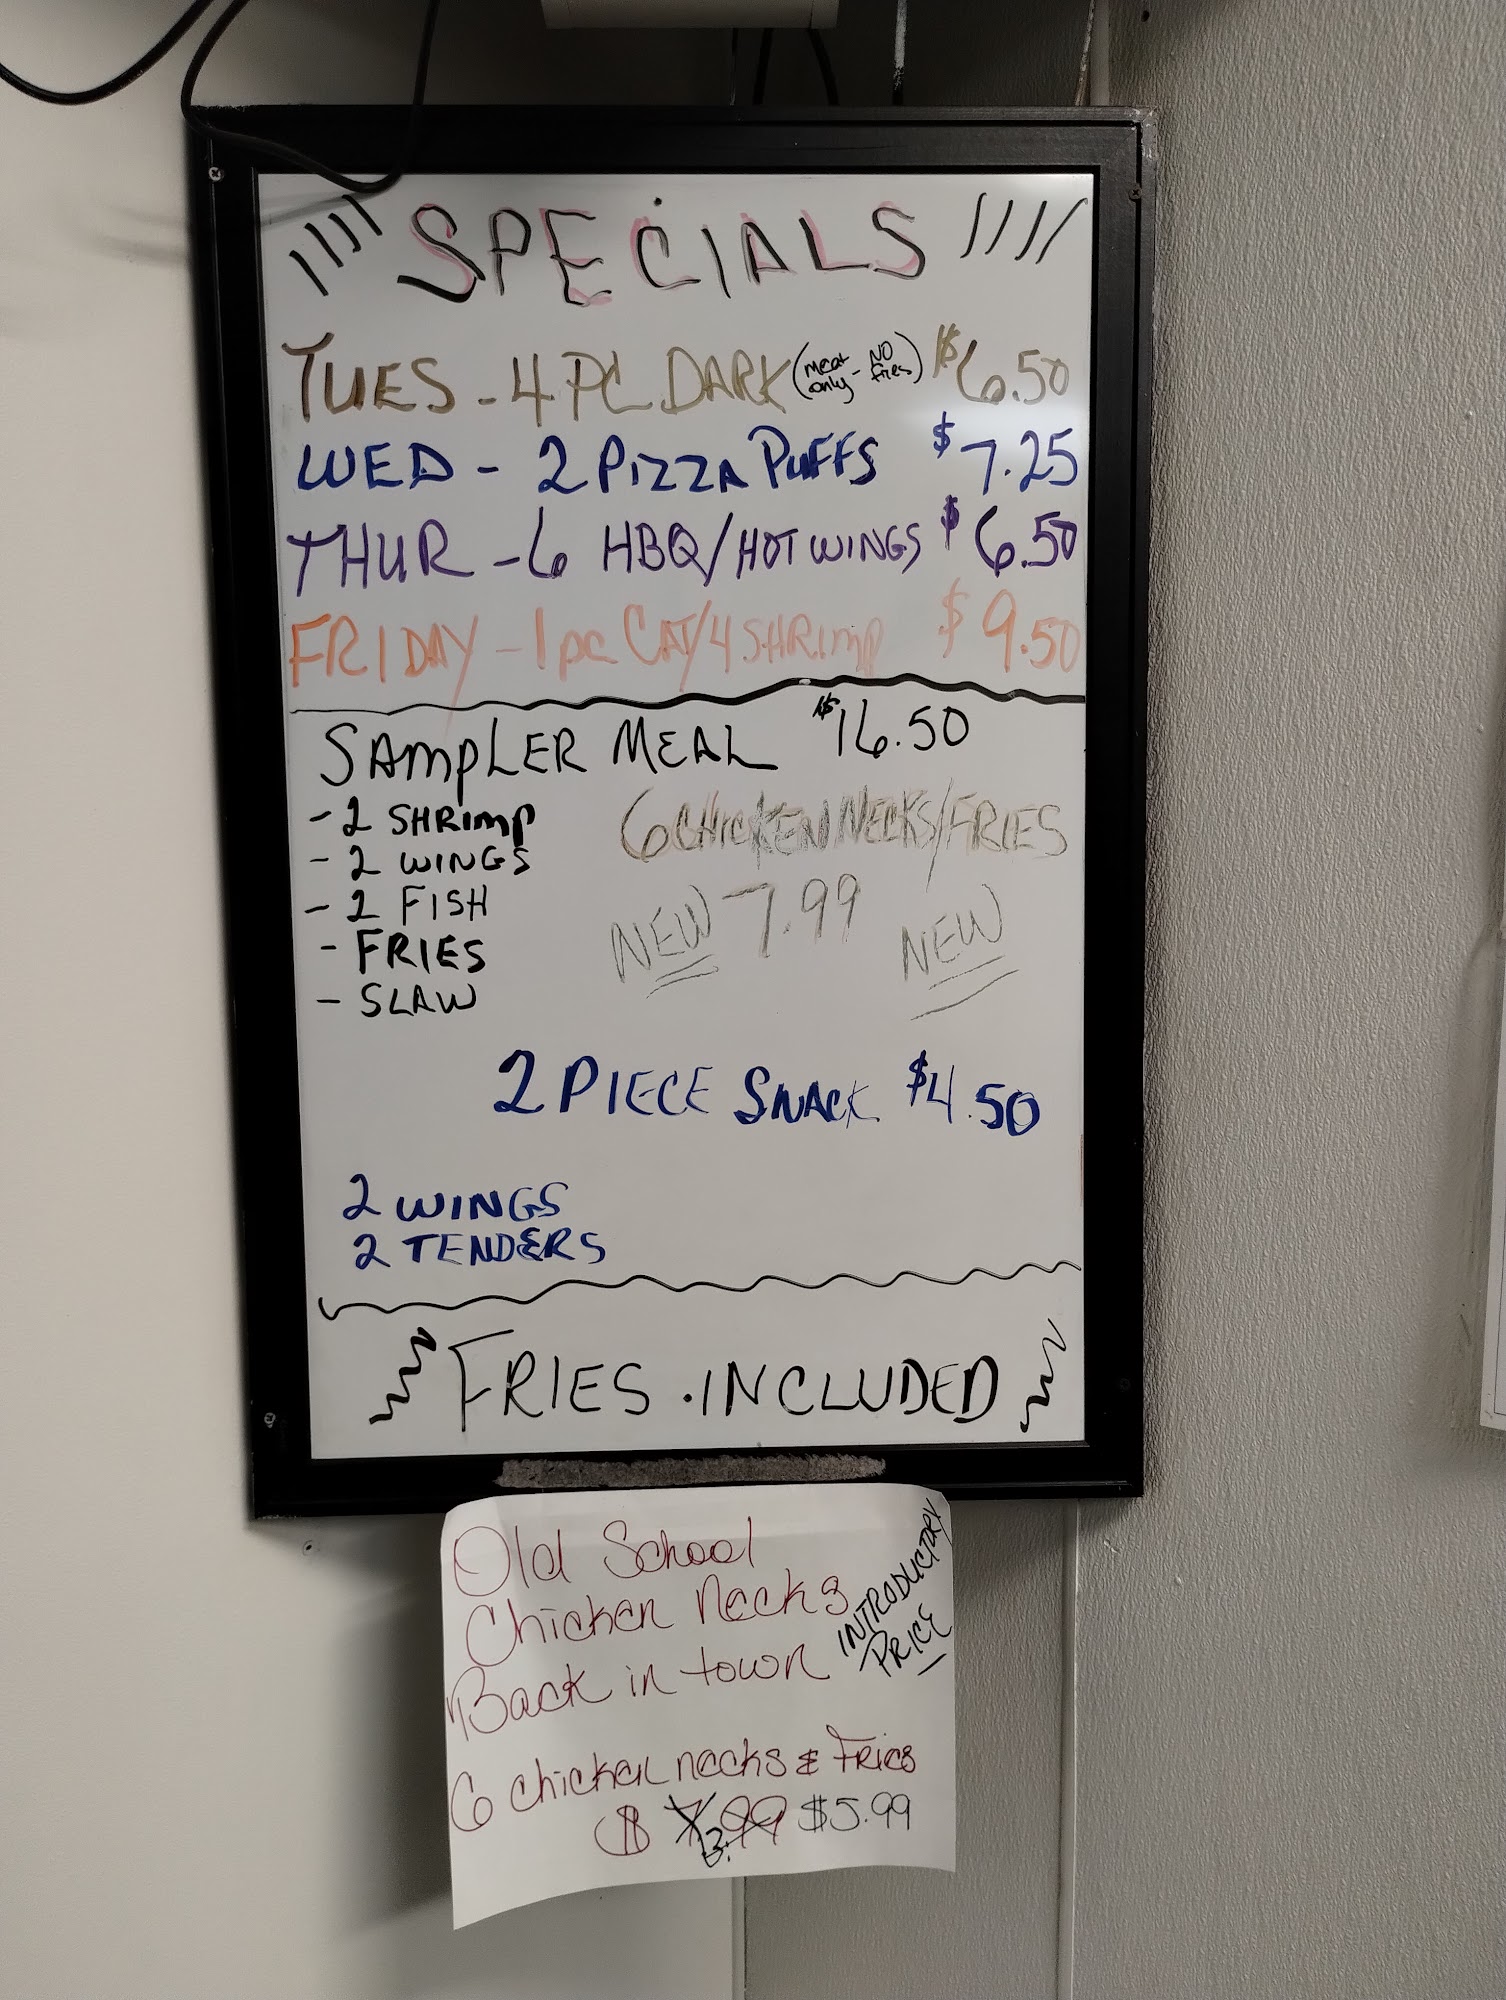 SPECIALS
TUES - 4 PC DARK (meat only - NO fries) $6.50
WED - 2 PIZZA PUFFS $7.25
THUR - 6 HBQ/HOT WINGS $6.50
FRIDAY - 1 pc CAT/4 SHRIMP $9.50
SAMPLER MEAL $16.50
- 2 SHRIMP
- 2 WINGS
- 2 FISH
- FRIES
- SLAW
6 CHICKEN NECKS/FRIES
NEW 7.99 NEW
2 PIECE SNACK $4.50
2 WINGS
2 TENDERS
FRIES INCLUDED
Old School
Chicken Necks
Back in town
INTRODUCTORY
PRICE
6 chicken necks & Fries
$ 7.99 $5.99